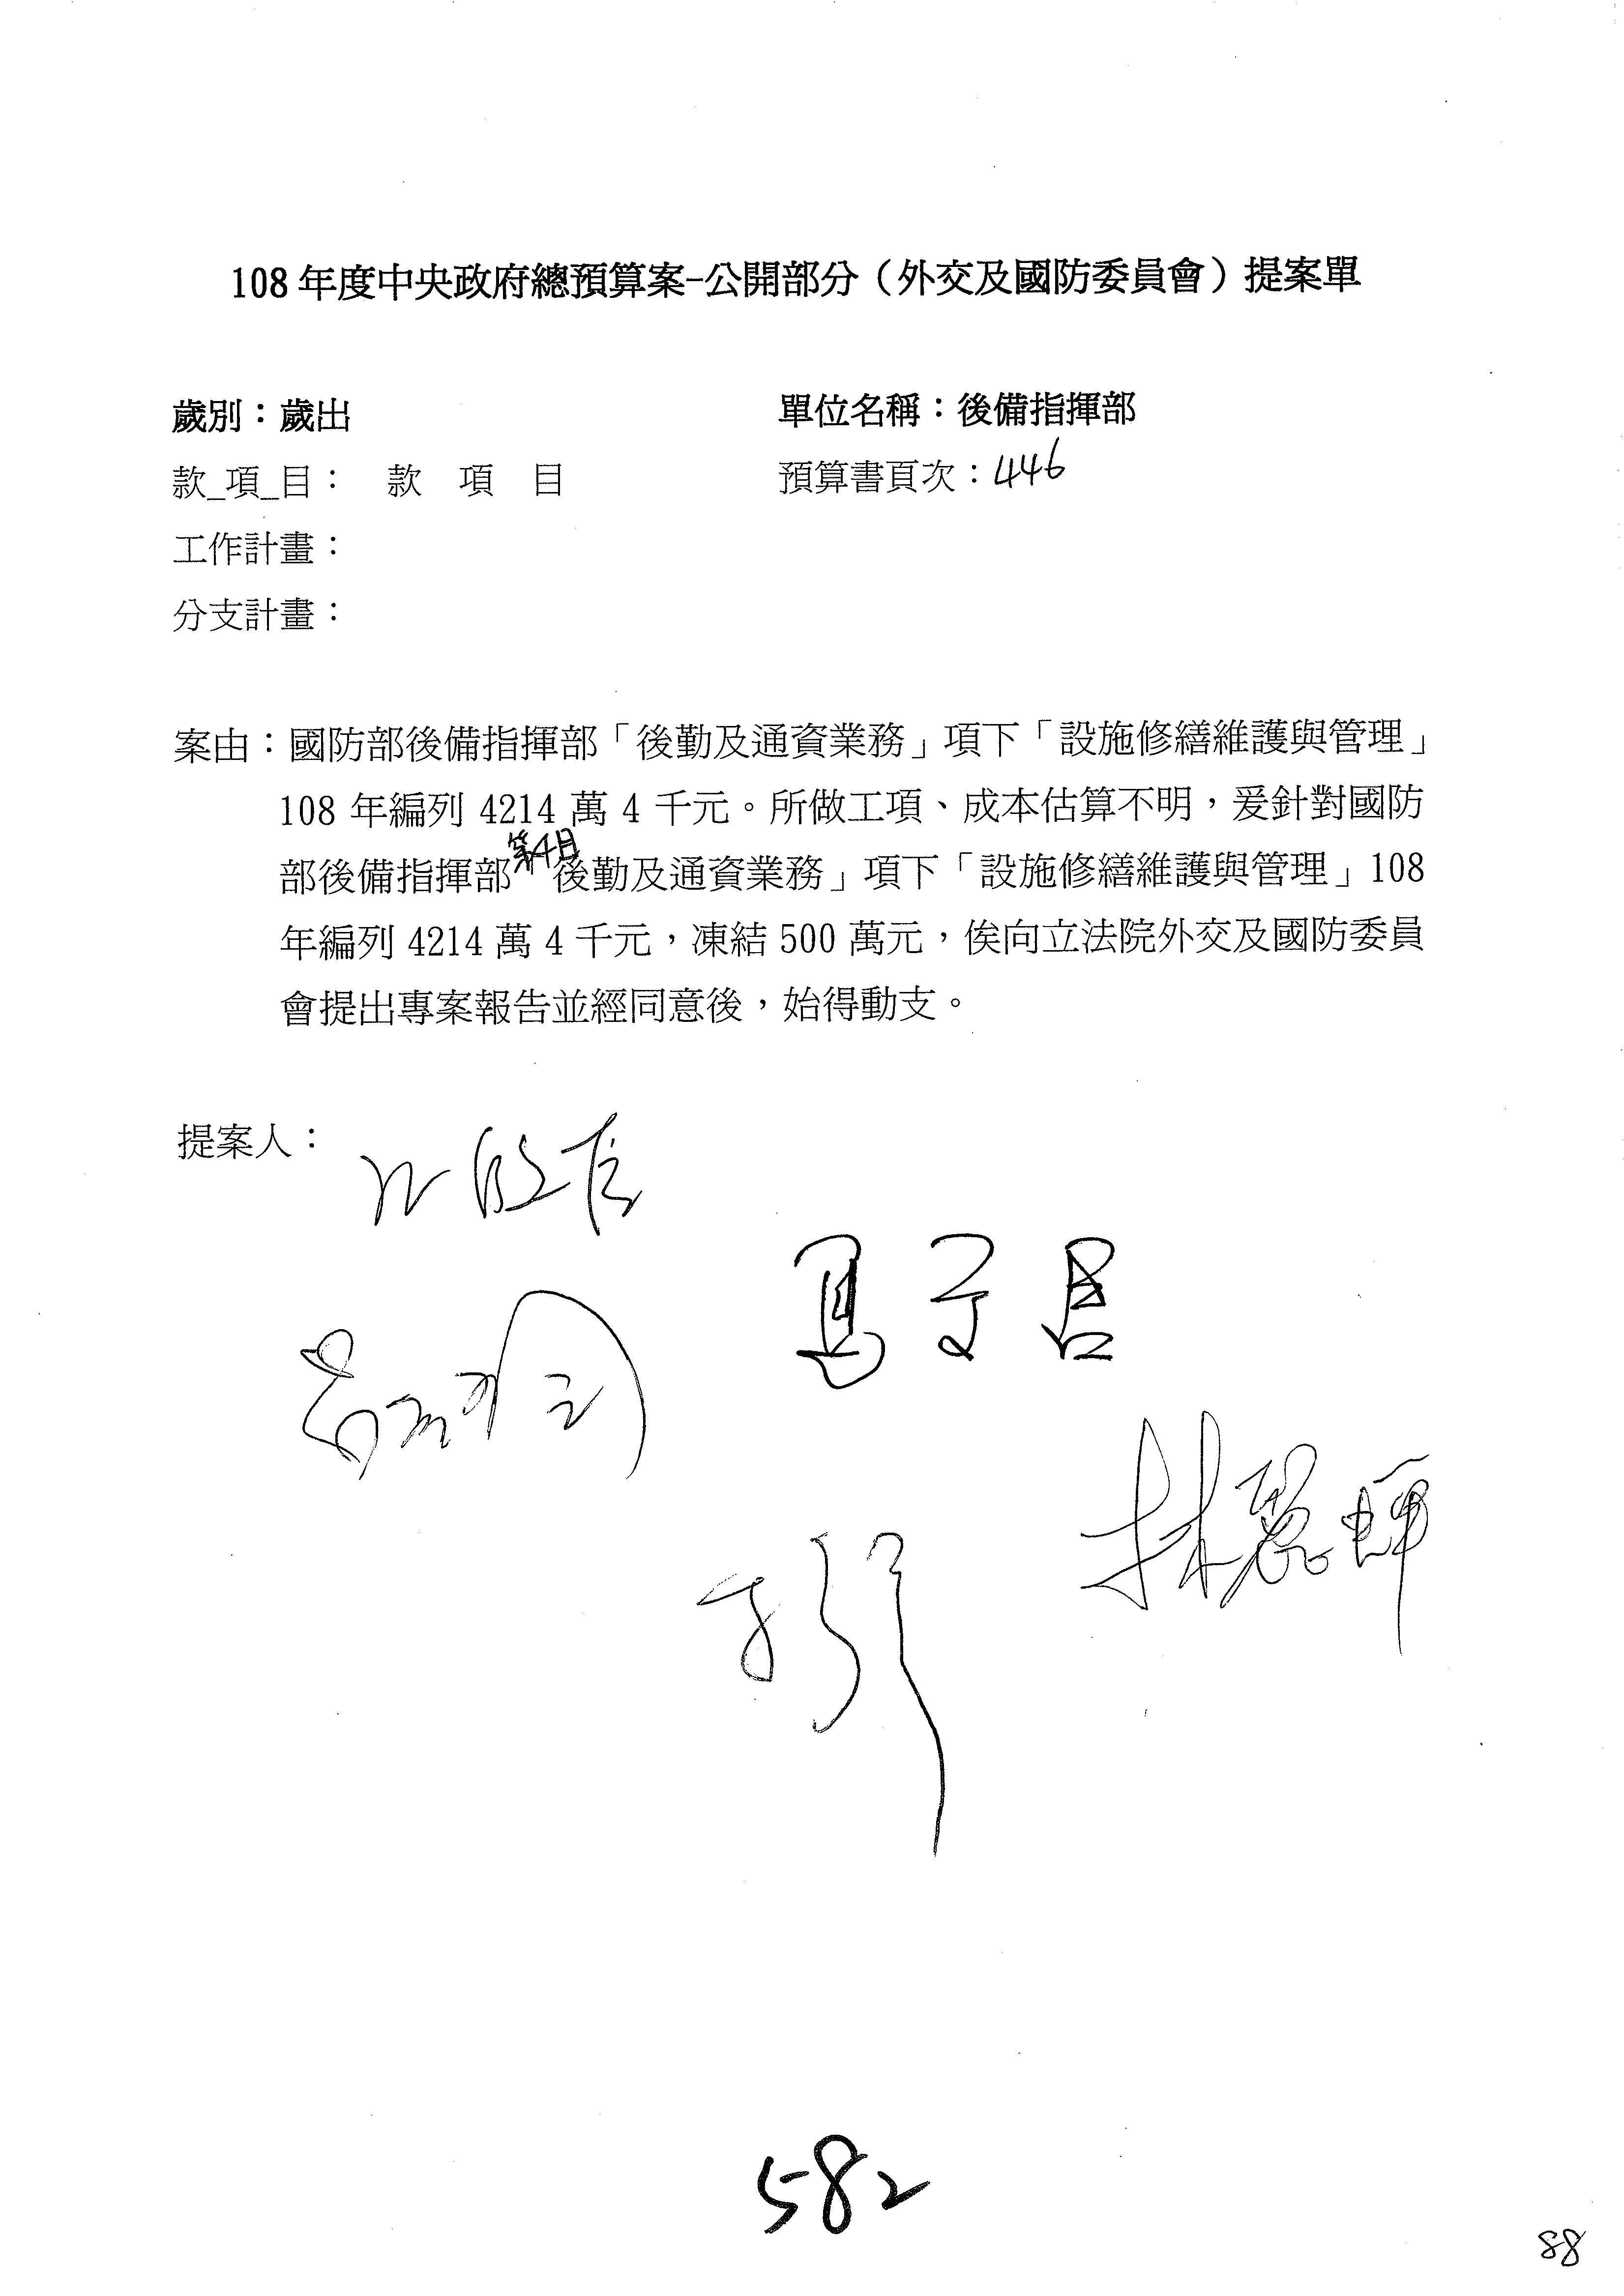 108年度中央政府總預算案-公開部分（外交及國防委員會）提案單
歲別：歲出 單位名稱：後備指揮部
款_項_目： 款 項 目 預算書頁次：446
工作計畫：
分支計畫：
案由：國防部後備指揮部「後勤及通資業務」項下「設施修繕維護與管理」
108年編列4214萬4千元。所做工項、成本估算不明，爰針對國防
第4目
部後備指揮部「後勤及通資業務」項下「設施修繕維護與管理」108
年編列4214萬4千元，凍結500萬元，俟向立法院外交及國防委員
會提出專案報告並經同意後，始得動支。
提案人：
江啟臣
馬文君
林麗蟬
582
88